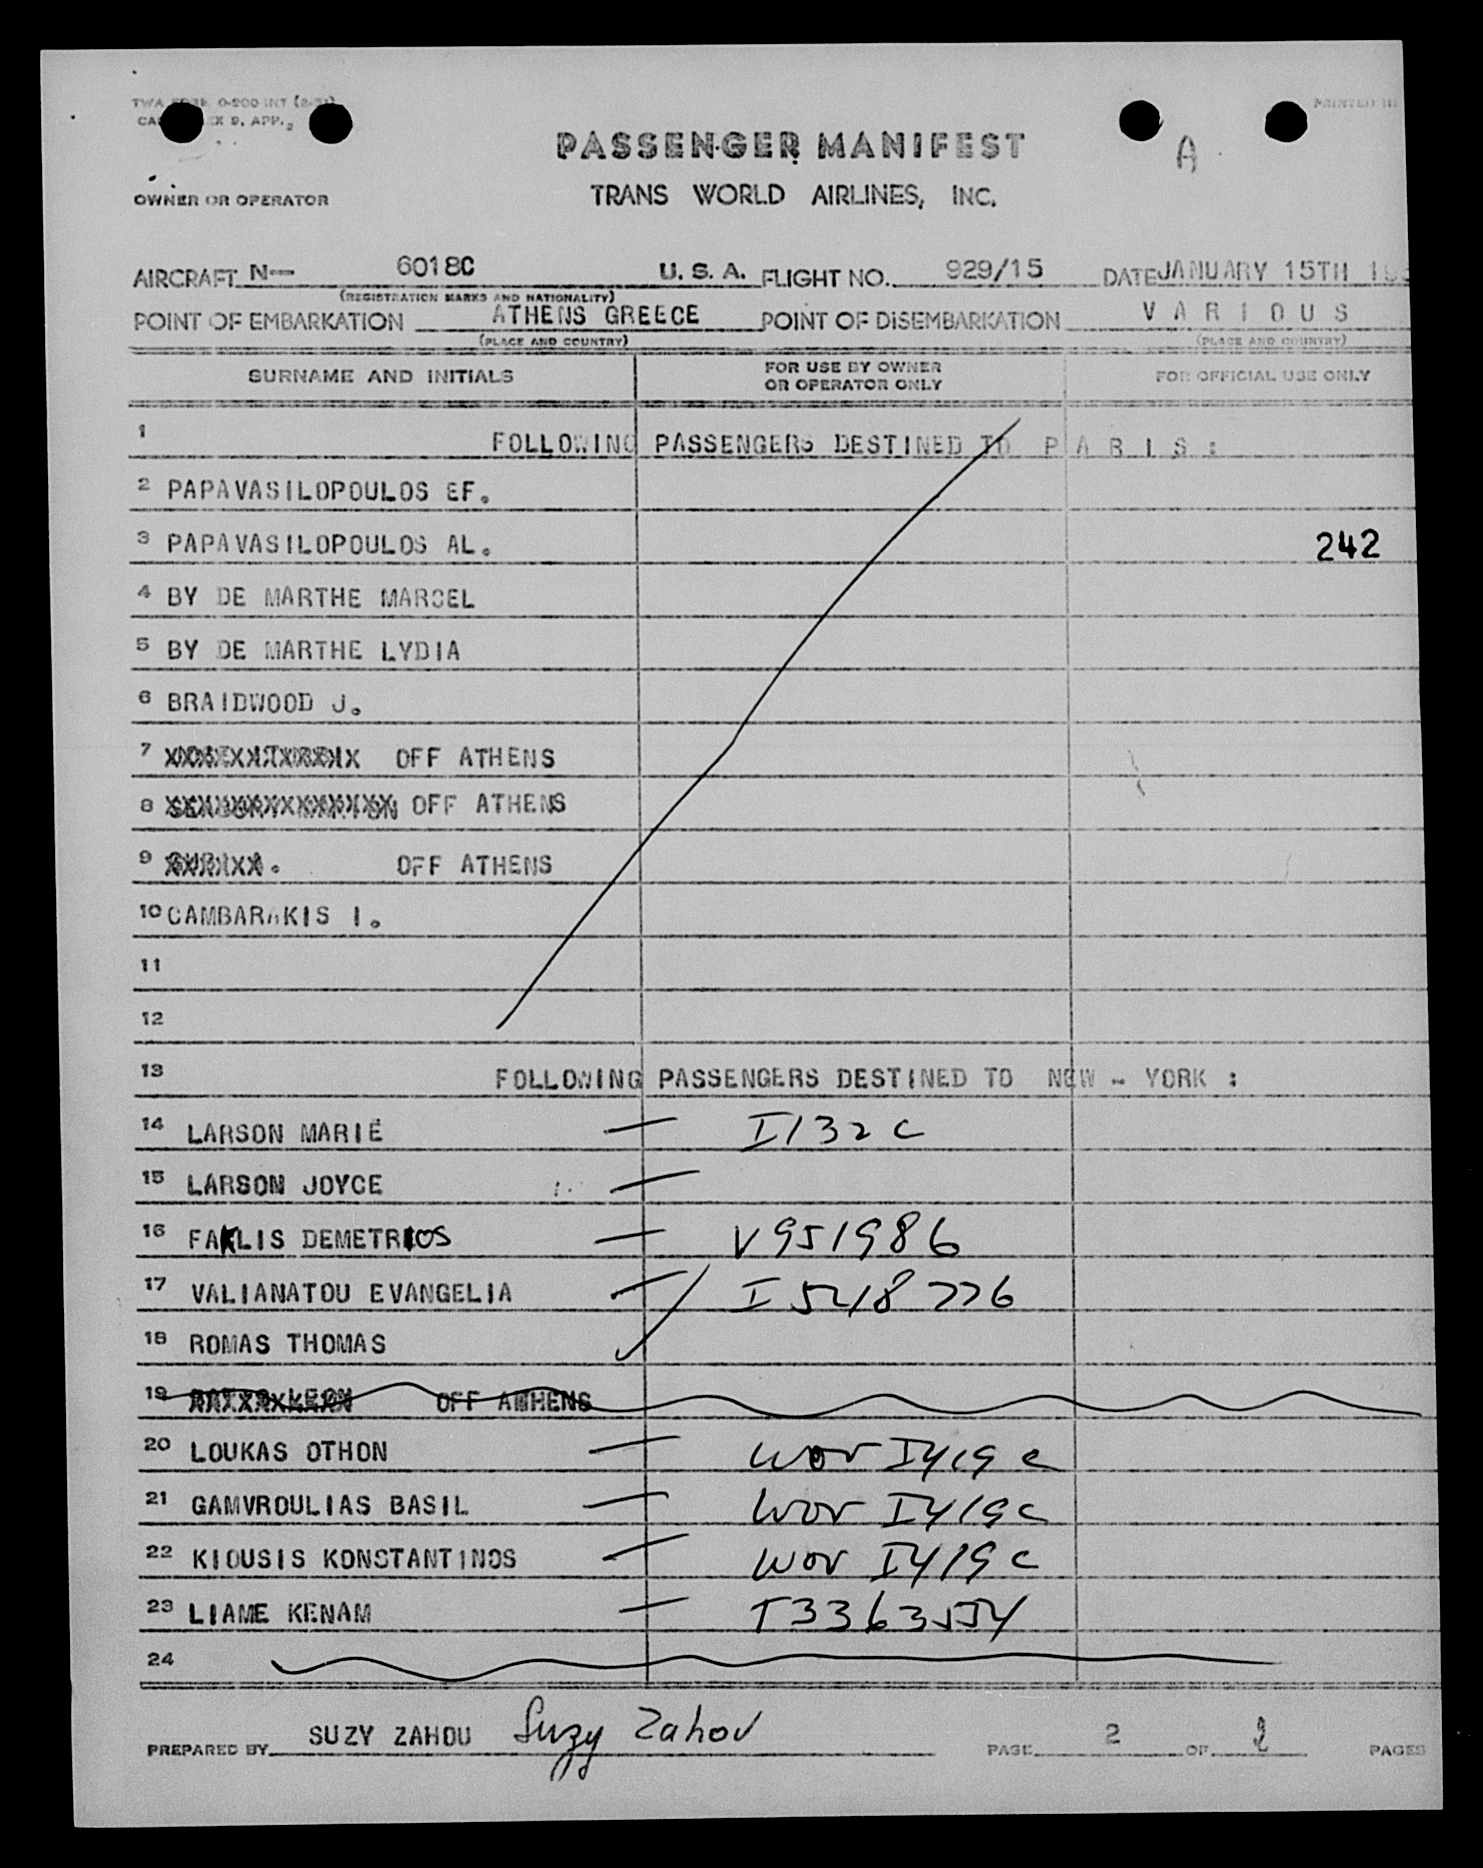 PASSENGER MANIFEST
A
TRANS WORLD AIRLINES, INC.
OWNER OR OPERATOR
AIRCRAFT N— 6018C U. S. A. FLIGHT NO. 929/15 DATE JANUARY 15TH
(REGISTRATION MARKS AND NATIONALITY)
POINT OF EMBARKATION ATHENS GREECE POINT OF DISEMBARKATION VARIOUS
(PLACE AND COUNTRY) (PLACE AND COUNTRY)
SURNAME AND INITIALS FOR USE BY OWNER OR OPERATOR ONLY FOR OFFICIAL USE ONLY
1 FOLLOWING PASSENGERS DESTINED TO P A R I S :
2 PAPAVASILOPOULOS EF.
3 PAPAVASILOPOULOS AL. 242
4 BY DE MARTHE MARCEL
5 BY DE MARTHE LYDIA
6 BRAIDWOOD J.
7 OFF ATHENS
8 OFF ATHENS
9 OFF ATHENS
10 CAMBARAKIS I.
11
12
13 FOLLOWING PASSENGERS DESTINED TO NEW - YORK :
14 LARSON MARIE — I132C
15 LARSON JOYCE —
16 FAKLIS DEMETRIOS — V951986
17 VALIANATOU EVANGELIA — I 5218 776
18 ROMAS THOMAS
19 OFF ATHENS
20 LOUKAS OTHON — WOV I419 C
21 GAMVROULIAS BASIL — WOV I419C
22 KIOUSIS KONSTANTINOS — WOV I419 C
23 LIAME KENAM —
24
PREPARED BY SUZY ZAHOU Suzy Zahov PAGE 2 OF 2 PAGES